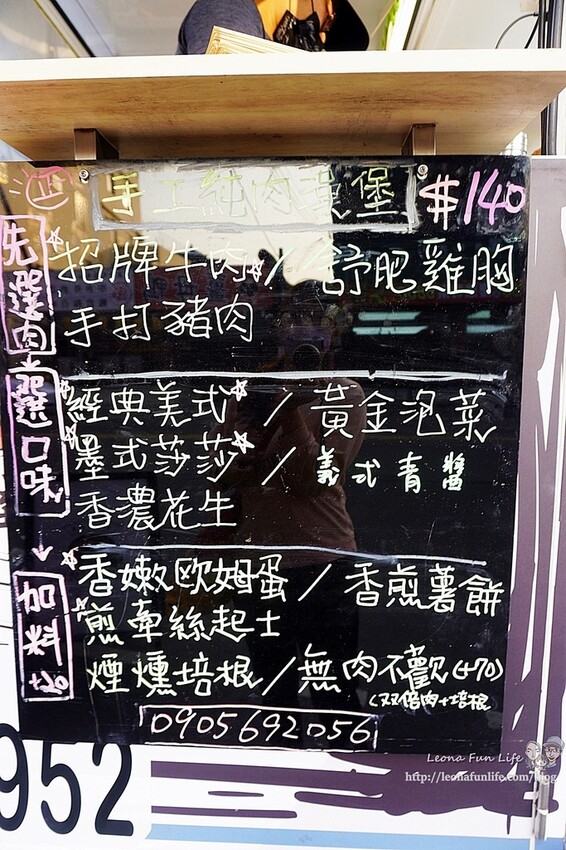 正 手工純肉漢堡 $140
先選肉
☆招牌牛肉☆/舒肥雞胸
手打豬肉
選口味
☆經典美式☆/黃金泡菜
☆墨式莎莎☆/義式青醬
香濃花生
加料+20
☆香嫩欧姆蛋/香煎薯餅
☆煎牽絲起士
煙燻培根/無肉不歡(+70)
(双倍肉+培根
0905692056
952
Leona Fun Life
http://leonafunlife.com/blog